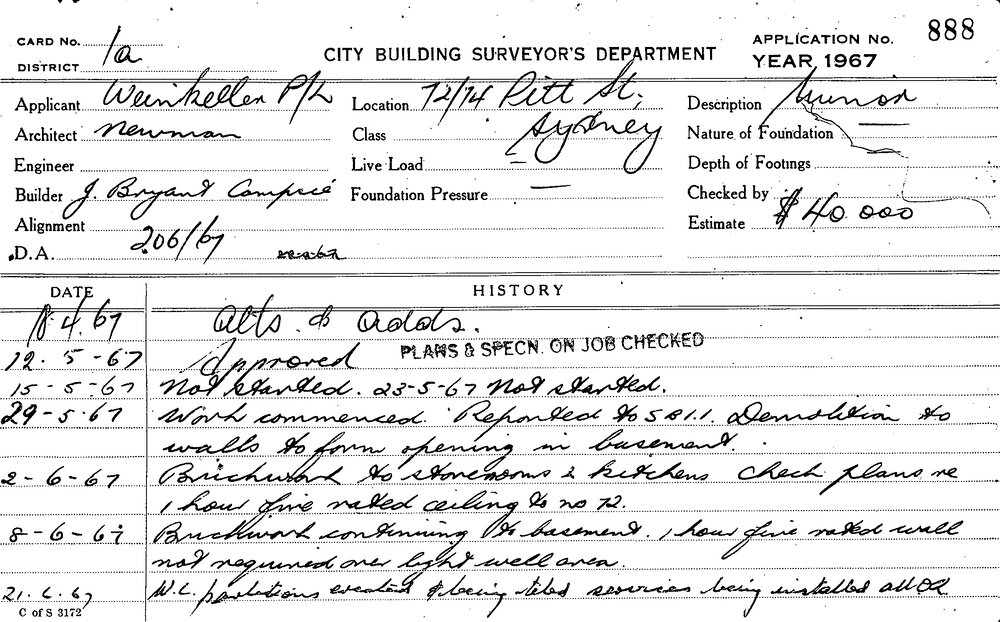 CARD No. 1a
DISTRICT
CITY BUILDING SURVEYOR'S DEPARTMENT
APPLICATION No. 888
YEAR 1967
Applicant Weinkeller P/L
Location 72/74 Pitt St;
Sydney
Description Minor
Architect Newman
Class
Nature of Foundation —
Engineer
Live Load —
Depth of Footings
Builder J. Bryant Campsie
Foundation Pressure —
Checked by
Alignment
Estimate $40 000
D.A. 206/67
DATE
HISTORY
18.4.67 Alts. & Adds.
12.5-67 Approved PLANS & SPECN. ON JOB CHECKED
15-5-67 Not started. 23-5-67 Not started.
29-5-67 Work commenced. Reported to SBI.1. Demolition to
walls to form opening in basement.
2-6-67 Brickwork to storerooms & kitchens check plans re
1 hour fire rated ceiling to no 72.
8-6-67 Brickwork continuing to basement. 1 hour fire rated wall
not required over light well area.
21.6.67 W.C. partitions erected & being tiled services being installed all OK
C of S 3172